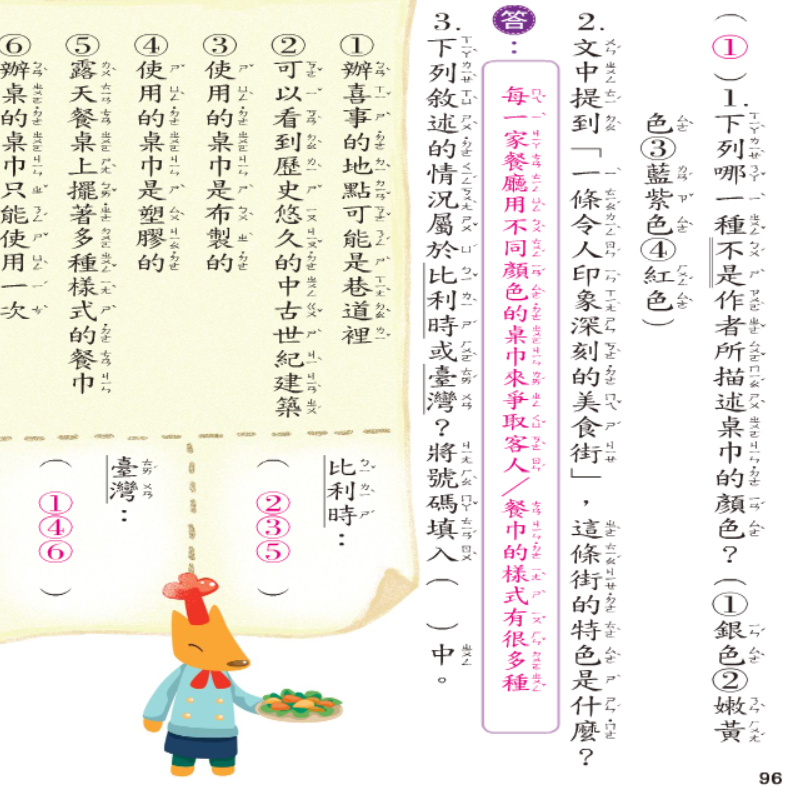 (①)1.下列哪一種不是作者所描述桌巾的顏色？(①銀色②嫩黃
色③藍紫色④紅色)
2.文中提到「一條令人印象深刻的美食街」，這條街的特色是什麼？
答：
每一家餐廳用不同顏色的桌巾來爭取客人／餐巾的樣式有很多種
3.下列敘述的情況屬於比利時或臺灣？將號碼填入( )中。
①辦喜事的地點可能是巷道裡
②可以看到歷史悠久的中古世紀建築
③使用的桌巾是布製的
④使用的桌巾是塑膠的
⑤露天餐桌上擺著多種樣式的餐巾
⑥辦桌的桌巾只能使用一次
比利時：
(②③⑤)
臺灣：
(①④⑥)
96